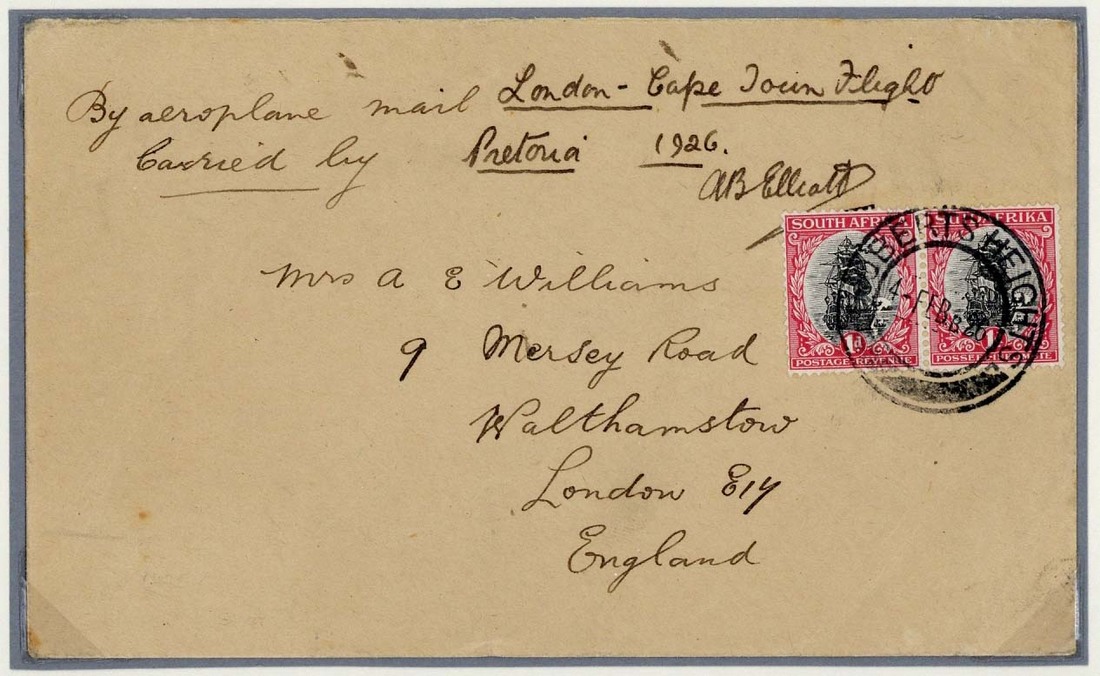 By aeroplane mail London - Cape Town Flight
Carried by Pretoria 1926.
AB Elliott
SOUTH AFRICA SUID AFRIKA
ROBERTS HEIGHTS
FEB 26
1d 1d
POSTAGE-REVENUE
Mrs A E Williams
9 Mersey Road
Walthamstow
London E17
England